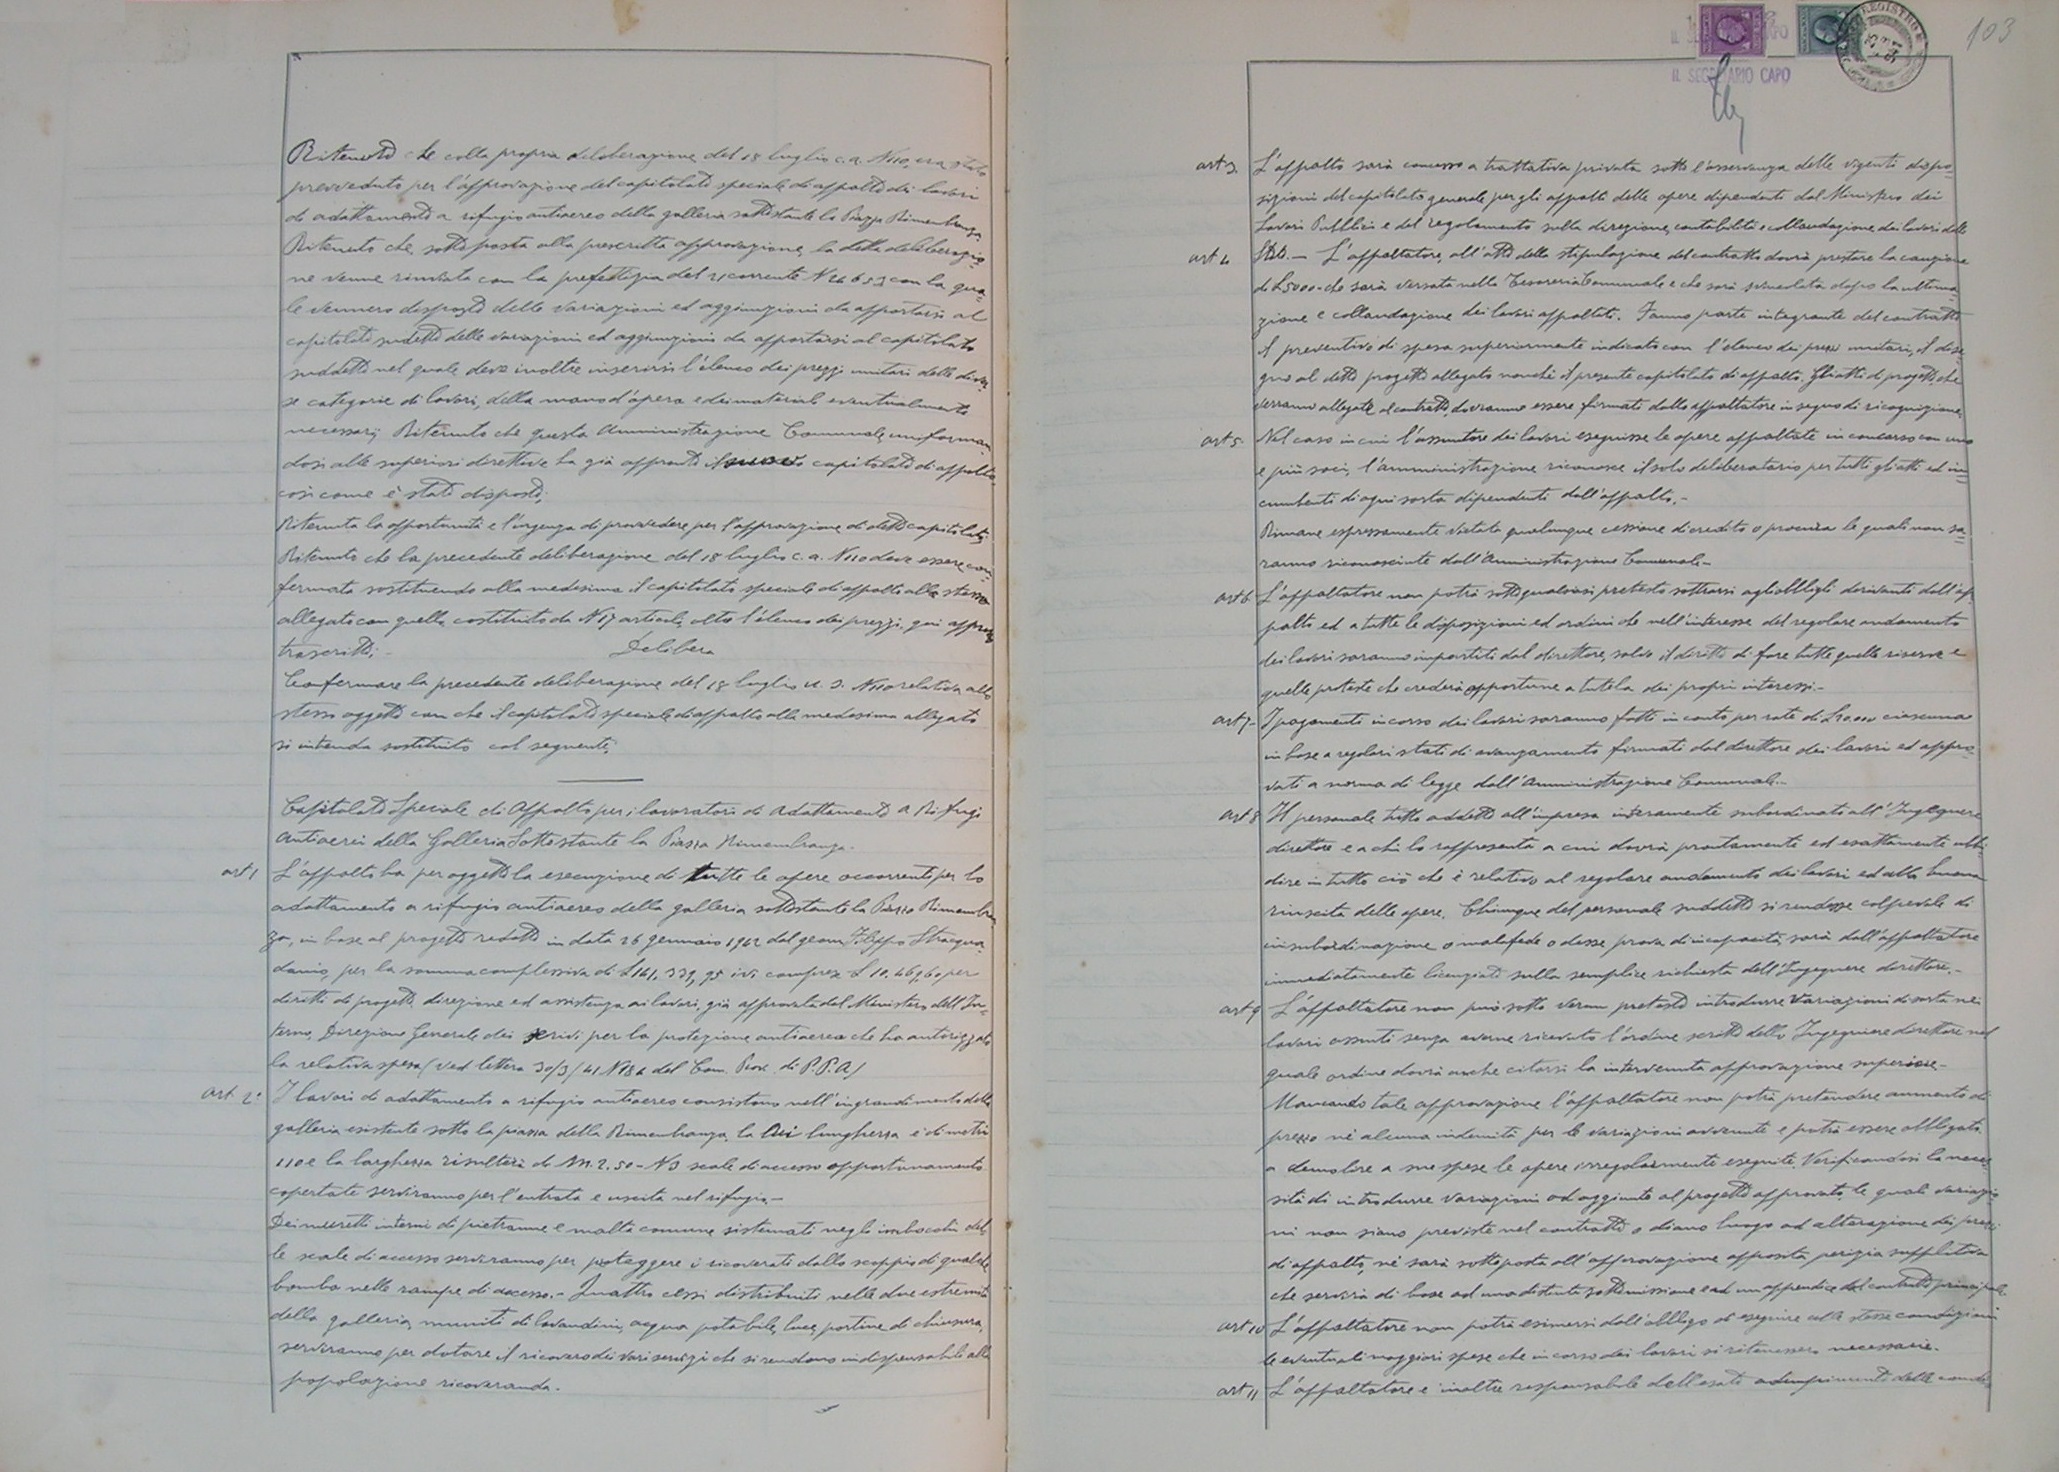 Ritenuto che colla propria deliberazione del 18 luglio c.a. N110, era stato
provveduto per l'approvazione del capitolato speciale di appalto dei lavori
di adattamento a rifugio antiaereo della galleria sottostante la Piazza Rimembranza.
Ritenuto che, sottoposta alla prescritta approvazione, la detta deliberazio=
ne venne rinviata con la prefettizia del 21 corrente N 26653 con la qua=
le vennero disposto delle variazioni ed aggiunzioni da apportarsi al
capitolato sudetto delle variazioni ed aggiunzioni da apportarsi al capitolato
suddetto nel quale deve inoltre inserirsi l'elenco dei prezzi unitari delle diver=
se categorie di lavori, della mano d'opera e dei materiali eventualmente
necessarii Ritenuto che questa Amministrazione Comunale, uniforman
dosi alle superiori direttive ha già approntato il nuovo capitolato di appalto,
così come è stato disposto;
Ritenuta la opportunità e l'urgenza di provvedere per l'approvazione di detto capitolato,
Ritenuto che la precedente deliberazione del 18 luglio c.a. N110 deve essere con=
fermata sostituendo alla medesima il capitolato speciale di appalto alla stessa
allegato con quello costituito da N 17 articoli, oltre l'elenco dei prezzi, qui appresso
trascritto;-
Delibera
Confermare la precedente deliberazione del 18 luglio u.s. N110 relativa allo
stesso oggetto con che il capitolato speciale di appalto alla medesima allegato
si intenda sostituito col seguente;
Capitolato Speciale di Appalto per i lavoratori di Adattamento a Rifugi
Antiaerei della Galleria Sottostante la Piazza Rimembranza.
art 1 L'appalto ha per oggetto la esecuzione di tutte le opere occorrenti per lo
adattamento a rifugio antiaereo della galleria sottostante la Piazza Rimembran
za, in base al progetto redatto in data 26 gennaio 1942 dal geom. Filippo Stracqua
danio, per la somma complessiva di £ 141.339,95 ivi comprese £ 10.469,60 per
diritti di progetto, direzione ed assistenza ai lavori, già approvata dal Ministero dell'In=
terno, Direzione Generale dei servizi per la protezione antiaerea che ha autorizzato
la relativa spesa (ved lettera 30/3/41 del Com. Prov. di P.P.A)
art 2° I lavori di adattamento a rifugio antiaereo consistono nell'ingrandimento della
galleria esistente sotto la piazza della Rimembranza, la cui lunghezza è di metri
110 e la larghezza risulterà di M. 2.50 - N 3 scale di accesso opportunamente
copertate serviranno per l'entrata e uscita nel rifugio.-
Dei muretti interni di pietrame e malta comune sistemati negli imbocchi del=
le scale di accesso serviranno per proteggere i ricoverati dallo scoppio di qualche
bomba nelle rampe di accesso.- Quattro cessi distribuiti nelle due estremità
della galleria, muniti di lavandini, acqua potabile, luce, portine di chiusura,
serviranno per dotare il ricovero dei vari servizi che si rendono indispensabili alla
popolazione ricoveranda.-
103
IL SEGRETARIO CAPO
art 3 L'appalto sarà concesso a trattativa privata sotto l'osservanza delle vigenti dispo=
sizioni del capitolato generale per gli appalti delle opere dipendenti dal Ministero dei
Lavori Pubblici e del regolamento sulla direzione, contabilità e collaudazione dei lavori dello
art 4 Stato.- L'appaltatore, all'atto della stipulazione del contratto dovrà prestare la cauzione
di £ 5000 - che sarà versata nella Tesoreria Comunale e che sarà svincolata dopo la ultima=
zione e collaudazione dei lavori appaltati. Fanno parte integrante del contratto
il preventivo di spesa superiormente indicato con l'elenco dei prezzi unitari, il dise
gno al detto progetto allegato nonchè il presente capitolato di appalto. Gli atti di progetto che
verranno allegati al contratto, dovranno essere firmati dallo appaltatore in segno di ricognizione.
art 5 Nel caso in cui l'assuntore dei lavori eseguisse le opere appaltate in concorso con uno
e più soci, l'amministrazione riconosce il solo deliberatario per tutti gli atti ed in=
cumbenti di ogni sorta dipendenti dall'appalto.-
Rimane espressamente vietata qualunque cessione di credito o procura le quali non sa=
ranno riconosciute dall'Amministrazione Comunale.-
art 6 L'appaltatore non potrà sotto qualsiasi pretesto sottrarsi agli obblighi derivanti dall'ap=
palto ed a tutte le disposizioni ed ordini che nell'interesse del regolare andamento
dei lavori saranno impartiti dal direttore, salvo il diritto di fare tutte quelle riserve e
quelle proteste che crederà opportune a tutela dei propri interessi.-
art 7- I pagamenti in corso dei lavori saranno fatti in conto per rate di £ 20.000 ciascuna
in base a regolari stati di avanzamento firmati dal direttore dei lavori ed appro=
vati a norma di legge dall'Amministrazione Comunale.-
art 8 Il personale tutto addetto all'impresa interamente subordinato all'Ingegnere
direttore e a chi lo rappresenta a cui dovrà prontamente ed esattamente ubbi=
dire in tutto ciò che è relativo al regolare andamento dei lavori ed alla buona
riuscita delle opere. Chiunque del personale suddetto si rendesse colpevole di
insubordinazione o malafede o desse prova di incapacità, sarà dall'appaltatore
immediatamente licenziato sulla semplice richiesta dell'Ingegnere direttore.-
art 9 L'appaltatore non può sotto verun pretesto introdurre variazioni di sorta nei
lavori assunti senza averne ricevuto l'ordine scritto dello Ingegnere direttore nel
quale ordine dovrà anche citarsi la intervenuta approvazione superiore.-
Mancando tale approvazione l'appaltatore non potrà pretendere aumento di
prezzo nè alcuna indennità per le variazioni avvenute e potrà essere obbligato
a demolire a sue spese le opere irregolarmente eseguite. Verificandosi la neces
sità di introdurre variazioni od aggiunte al progetto approvato, le quali variazio=
ni non siano previste nel contratto o diano luogo ad alterazione dei prezzi
di appalto, nè sarà sottoposta all'approvazione apposita perizia suppletiva
che servirà di base ad una distinta sottomissione ed un appendice del contratto principale
art 10 L'appaltatore non potrà esimersi dall'obbligo di eseguire alle stesse condizioni
le eventuali maggiori spese che in corso dei lavori si ritenessero necessarie.-
art 11 L'appaltatore è inoltre responsabile dell'esatto adempimento delle condi